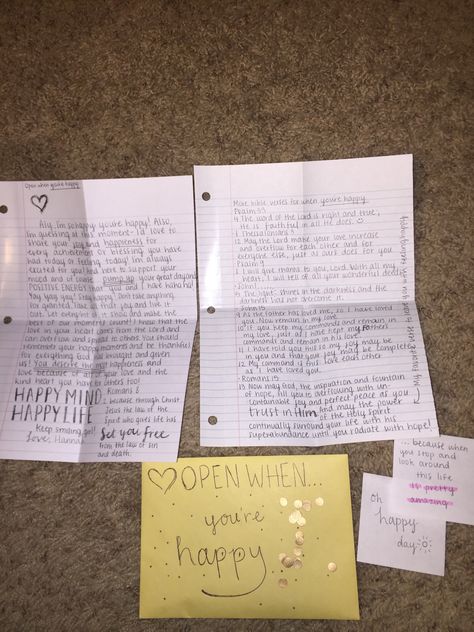 Open when you're happy
Aly, I'm so happy you're happy! Also,
I'm guessing at this moment I'd love to
share your joy and happiness for
every achievement or blessing you have
had today or feeling today! I'm always
excited for you and here to support your
mood and of course pump up your great day and
POSITIVE ENERGY that you and I have haha!
Yay yay yay! Stay happy! Don't take anything
for granted, take that joy and live it
out. Let everyone it, show and make the
best of your moment count! I know that the
love in your heart comes from the Lord and
can overflow and spread to others. You should
remember your happy moments and be thankful
for everything God has brought and given
us! You deserve the most happiness and
love because of all of your love and the
kind heart you have to others too!
HAPPY MIND
HAPPY LIFE
Keep smiling girl!
Love, Hannah
Romans 8
2 because through Christ
Jesus the law of the
Spirit who gives life has
Set you free
from the law of sin
and death.
More bible verses for when you're happy
Psalm 33
4 The word of the Lord is right and true,
He is faithful in all He does.
1 Thessalonians 3
12 May the Lord make your love increase
and overflow for each other and for
everyone else, just as ours does for you
Psalm 9
1 I will give thanks to you, Lord, with all my
heart; I will tell of all your wonderful deeds.
John 1
5 The light shines in the darkness and the
darkness has not overcome it.
John 15
9 As the Father has loved me, so I have loved
you. Now remain in my love.
10 If you keep my commands and remain in
my love, just as I have kept my Fathers
commands and remain in his love.
11 I have told you this so my joy may be
in you and that your joy may be complete
12 My command is this: Love each other
as I have loved you.
Romans 15
13 Now may God, the inspiration and fountain
of hope, fill you to overflowing with un-
containable joy and perfect peace as you
trust in Him. And may the power
of the Holy Spirit
continually surround your life with his
superabundance until you radiate with hope!
OPEN WHEN...
you're
happy
... because when
you stop and
look around
this life
is pretty
amazing
oh
happy
day